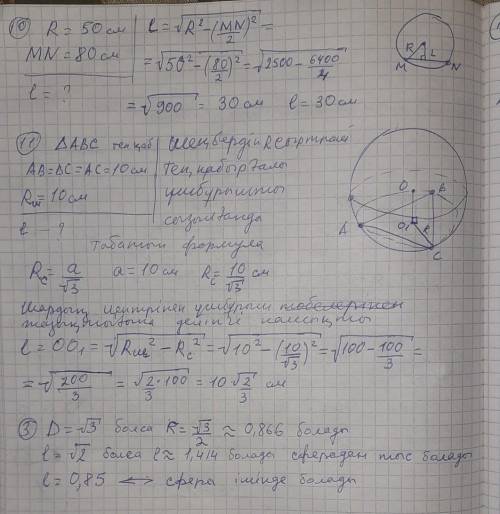 10 R = 50 см
MN = 80 см
l = ?
l = √(R² - (MN/2)²) =
= √(50² - (80/2)²) = √(2500 - 6400/4)
= √900 = 30 см l = 30 см
R L
M N
11 ΔABC тең қаб
AB = BC = AC = 10 см
Rш = 10 см
l - ?
Шеңбердің R сырттай
Тең қабырғалы
үшбұрышты
сызылғанда
табатын формула
O B
A O₁ R
C
Rc = a/√3 a = 10 см Rc = 10/√3 см
Шардың центрінен үшбұрыш
жазықтығына дейінгі
l = OO₁ = √(Rш² - Rc²) = √(10² - (10/√3)²) = √(100 - 100/3) =
= √(200/3) = √(2·100/3) = 10√(2/3) см
3 D = √3 болса R = √3/2 ≈ 0,866 болады
l = √2 болса l ≈ 1,414 болады сферадан тыс болады
l = 0,85 ⟺ сфера ішінде болады